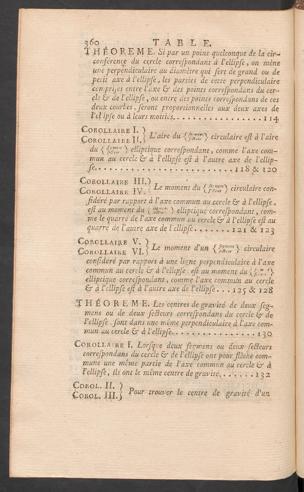 360 TABLE.
THÉOREME. Si par un point quelconque de la cir-
conférence du cercle correspondant à l'ellipse, on mène
une perpendiculaire au diamètre qui sert de grand ou de
petit axe à l'ellipse, les parties de cette perpendiculaire
comprises entre l'axe & des points correspondans du cer-
cle & de l'ellipse, ou entre des points correspondans de ces
deux courbes, seront proportionnelles aux deux axes de
l'ellipse ou à leurs moitiés. 114
COROLLAIRE I. } L'aire du { segment secteur } circulaire est à l'aire
COROLLAIRE II. }
du { segment secteur } elliptique correspondant, comme l'axe com-
mun au cercle & à l'ellipse est à l'autre axe de l'ellip-
se. 118 & 120
COROLLAIRE III. } Le moment du { segment secteur } circulaire con-
COROLLAIRE IV. }
sidéré par rapport à l'axe commun au cercle & à l'ellipse,
est au moment du { segment secteur } elliptique correspondant, com-
me le quarré de l'axe commun au cercle & à l'ellipse est au
quarré de l'autre axe de l'ellipse. 121 & 123
COROLLAIRE V. } Le moment d'un { segment secteur } circulaire
COROLLAIRE VI. }
considéré par rapport à une ligne perpendiculaire à l'axe
commun au cercle & à l'ellipse, est au moment du { segment secteur }
elliptique correspondant, comme l'axe commun au cercle
& à l'ellipse est à l'autre axe de l'ellipse. 125 & 128
THÉOREME. Les centres de gravité de deux seg-
mens ou de deux secteurs correspondans du cercle & de
l'ellipse, sont dans une même perpendiculaire à l'axe com-
mun au cercle & à l'ellipse. 130
COROLLAIRE I. Lorsque deux segmens ou deux secteurs
correspondans du cercle & de l'ellipse ont pour flèche com-
mune une même partie de l'axe commun au cercle & à
l'ellipse, ils ont le même centre de gravité. 132
COROL. II. } Pour trouver le centre de gravité d'un
COROL. III. }